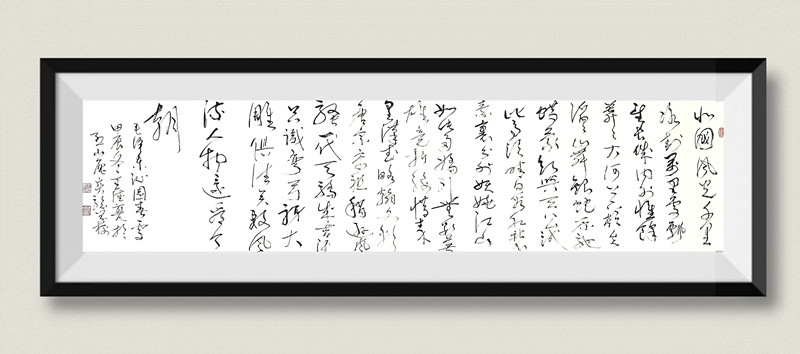 北國風光千里
冰封萬里雪飄
望長城内外惟餘
莽莽大河上下頓失
滔滔山舞銀蛇原馳
蠟象欲與天公試
比高須晴日看紅裝
素裹分外妖嬈江山
如此多嬌引無數英
雄竞折腰惜秦
皇漢武略輸文彩
唐宗宋祖稍遜風
騷一代天驕成吉思汗
只識彎弓射大
雕俱往矣數風
流人物還看今
朝
毛澤東沁園春雪
甲辰冬